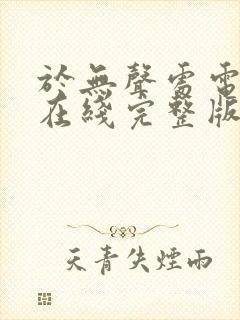 於無聲處雷電
在綫完整版
天青失煙雨